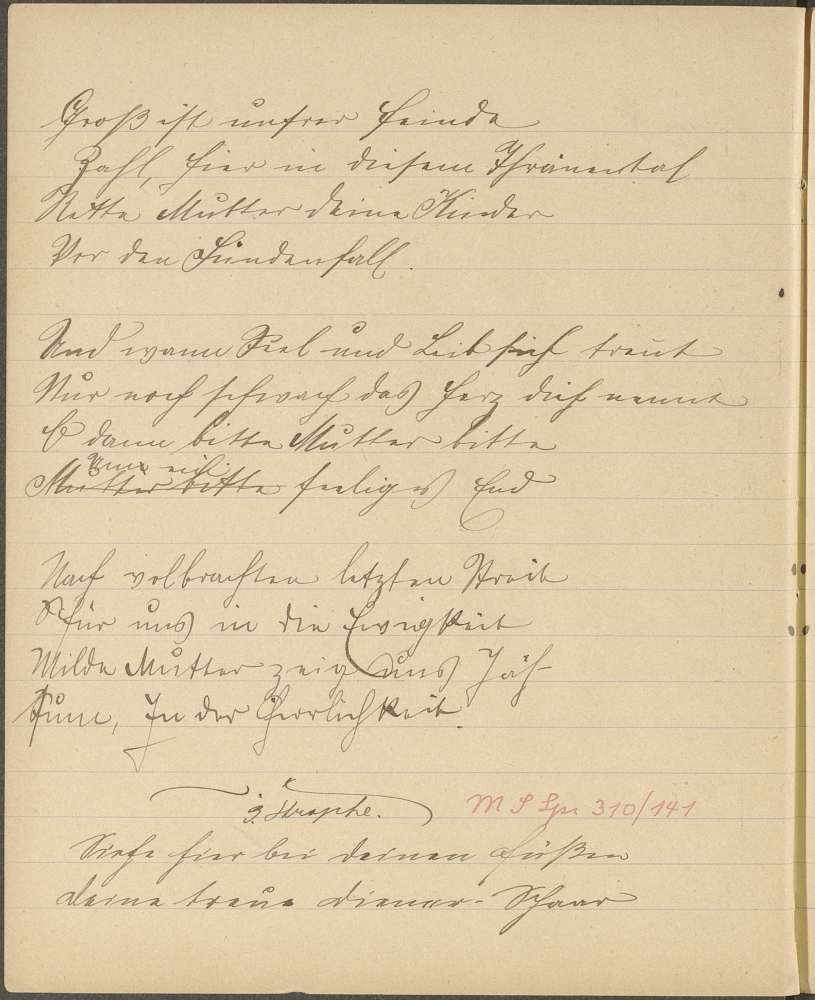 Groß ist unsrer Feinde
Zahl, hier in diesem Thränental
Rette Mutter deine Kinder
Vor den Sündenfall.
Und wann Seel und Leib sich trent
Nur noch schwach das Herz dich nennt
O dann bitte Mutter bitte
Um ein
Mutter bitte seeliges End
Nach volbrachten letzten Streit
Führ uns in die Ewigkeit
Milde Mutter zeig uns
In der Herrlichkeit.
3. Strophe.
M S Spr 310/141
Siehe hier bei deinen Füßen
deine treue Diener-Schaar